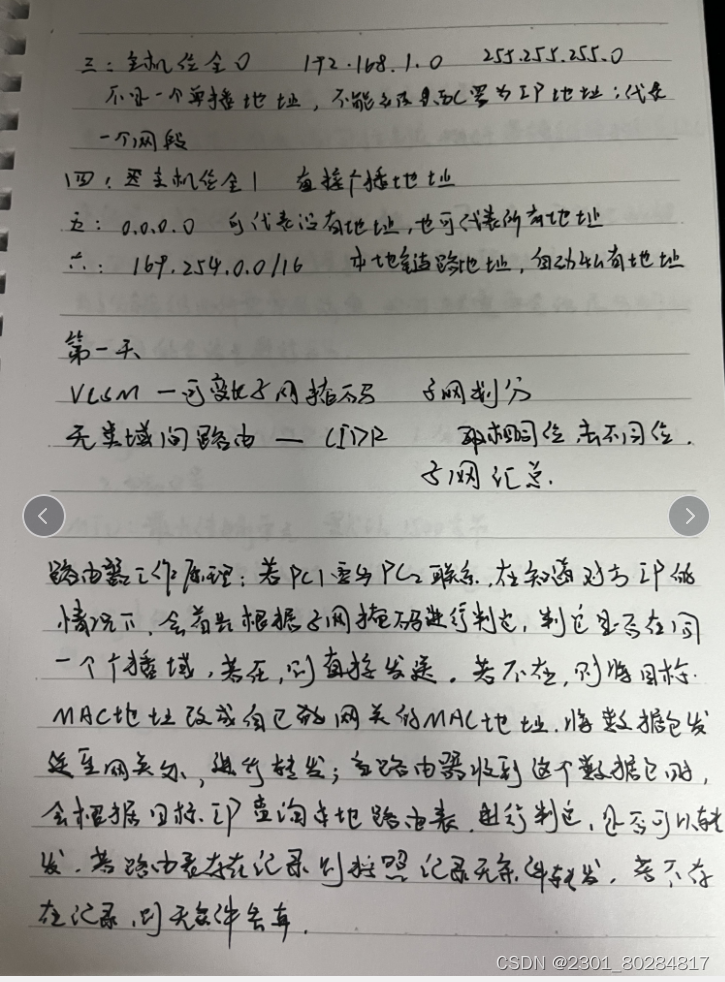 三：主机位全0 192.168.1.0 255.255.255.0
不是一个单播地址，不能被配置为IP地址；代表
一个网段
四：主机位全1 直接广播地址
五：0.0.0.0 可代表没有地址，也可代表所有地址
六：169.254.0.0/16 本地链路地址，自动私有地址
第一天
VLSM 一可变长子网掩码 子网划分
无类域间路由 — CIDR 取相同位，去不同位．
子网汇总．
路由器工作原理：若PC1要与PC2联系，在知道对方IP的
情况下，会首先根据子网掩码进行判定，判定是否在同
一个广播域，若在，则直接发送。若不在，则将目标
MAC地址改成自己的网关的MAC地址．将数据包发
送至网关处，进行转发；当路由器收到这个数据包时，
会根据目标IP查询本地路由表，进行判定，是否可以转
发．若路由表存在记录则按照记录无条件转发，若不存
在记录，则无条件丢弃．
CSDN @2301_80284817